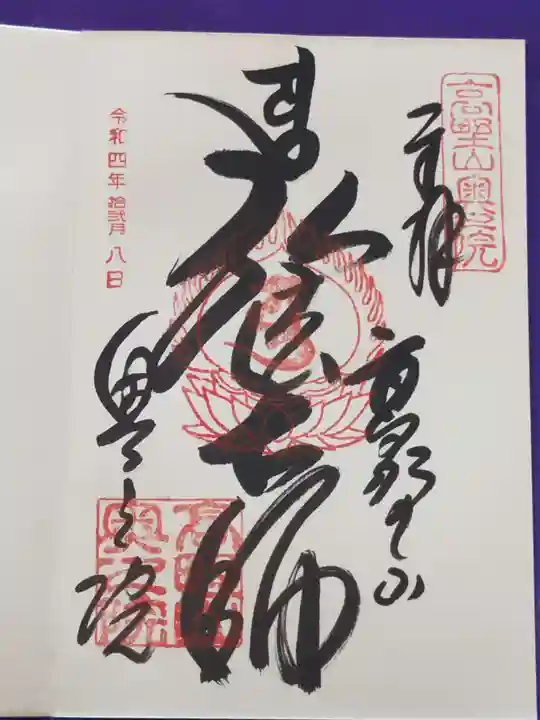 高野山奥之院
奉拝
高野山
大師
奥之院
高野山奥之院
令和四年拾弐月八日